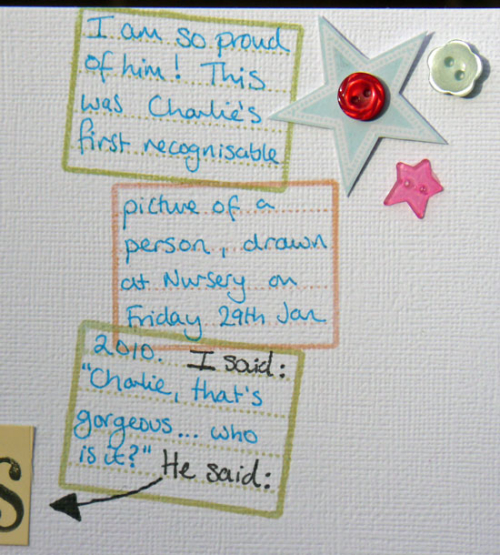 I am so proud
of him! This
was Charlie's
first recognisable
picture of a
person, drawn
at Nursery on
Friday 29th Jan
2010. I said:
"Charlie, that's
gorgeous... who
is it?" He said:
s